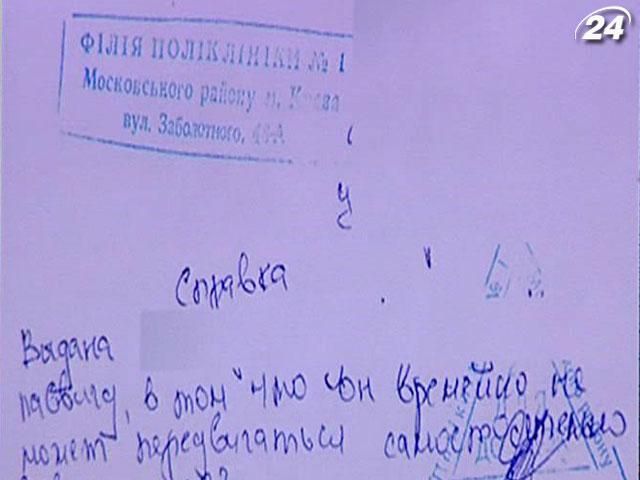 24
ФІЛІЯ ПОЛІКЛІНІКИ № 1
Московського району м. Києва
вул. Заболотного,
у
Справка
Выдана
в том что он временно не
может передвигаться самостоятельно